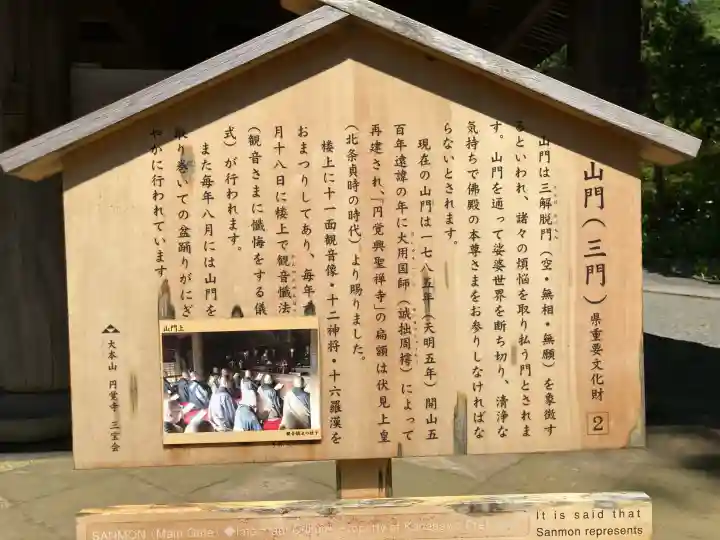 山門(三門) 県重要文化財 2
山門は三解脱門(空・無相・無願)を象徴す
るといわれ、諸々の煩悩を取り払う門とされま
す。山門を通って娑婆世界を断ち切り、清浄な
気持ちで佛殿の本尊さまをお参りしなければな
らないとされます。
現在の山門は一七八五年(天明五年)開山五
百年遠諱の年に大用国師(誠拙周樗)によって
再建され、「円覚興聖禅寺」の扁額は伏見上皇
(北条貞時の時代)より賜りました。
楼上に十一面観音像・十二神将・十六羅漢を
おまつりしてあり、毎年
月十八日に楼上で観音懺法
(観音さまに懺悔をする儀
式)が行われます。
また毎年八月には山門を
取り巻いての盆踊りがにぎ
やかに行われています
大本山 円覚寺 三宝会
山門上
SANMON (Main Gate) ◆Important Cultural Property of Kanagawa Pref
It is said that
Sanmon represents